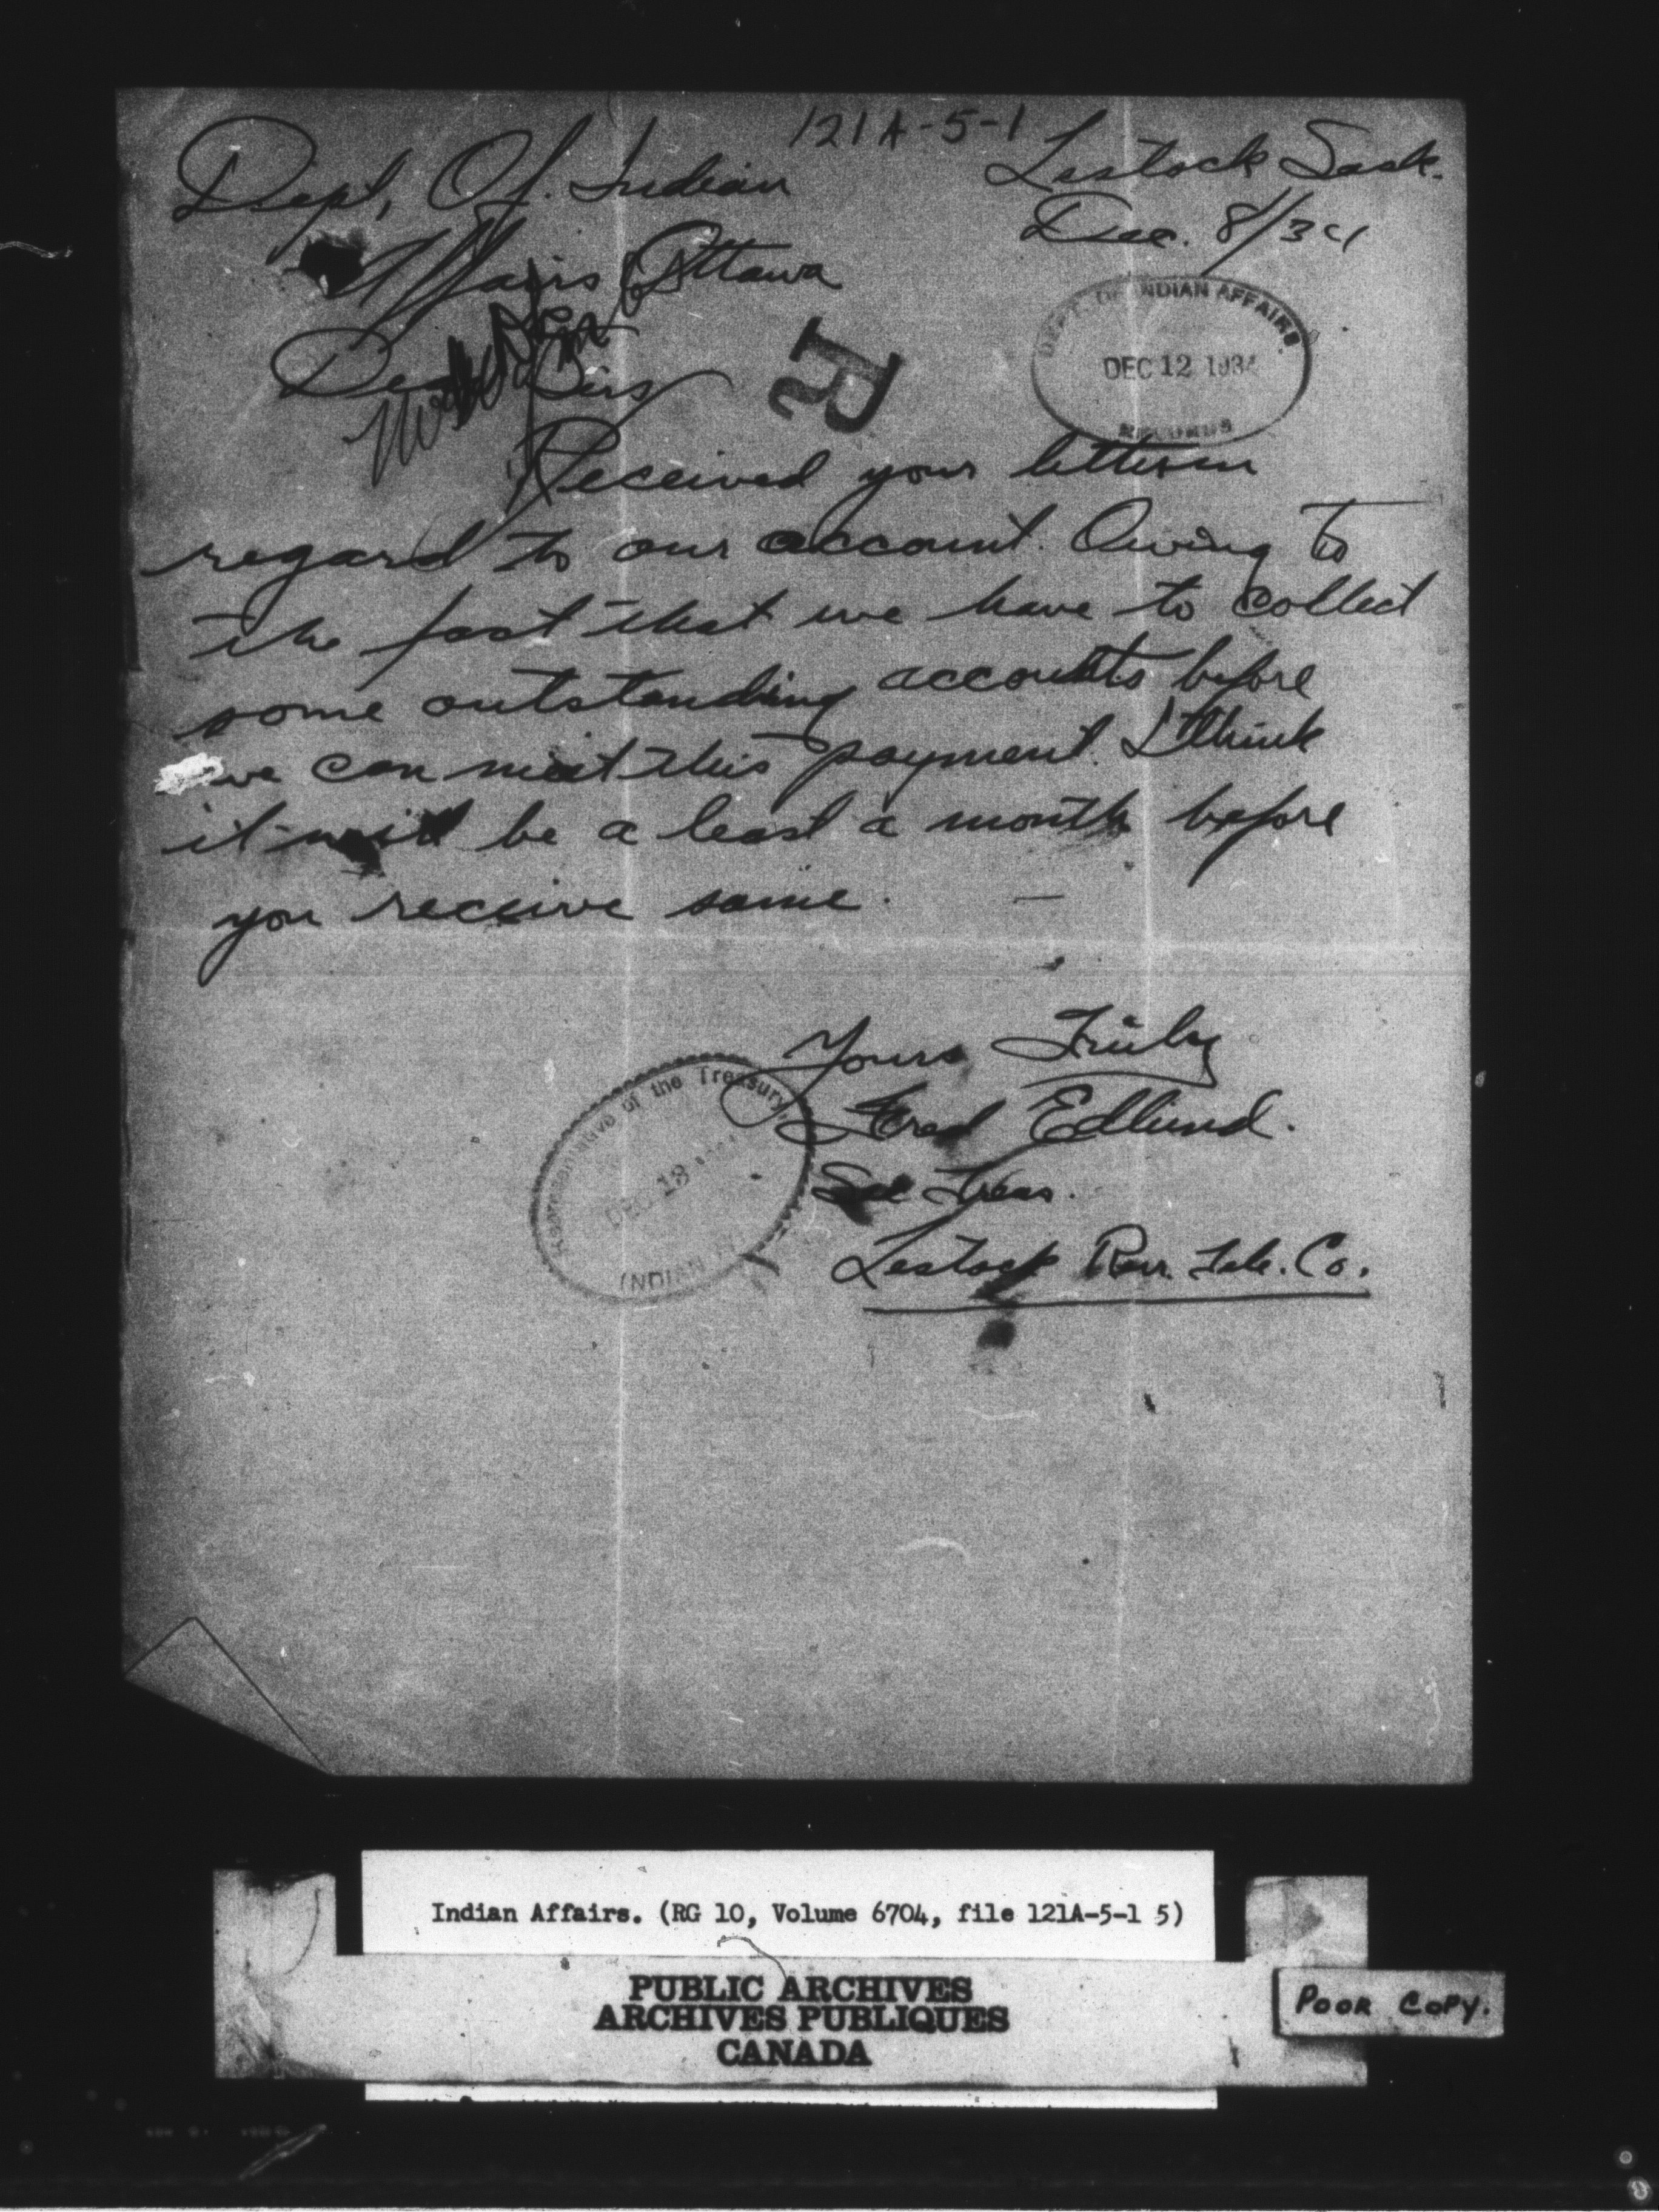 121A-5-1
Lestock Sask.
Dec. 8/34
Dept, Of. Indian
Affairs Ottawa
DEPT. OF INDIAN AFFAIRS.
DEC 12 1934
RECORDS
R
Dear Sirs
Received your letter in
regard to our account. Owing to
the fact that we have to collect
some outstanding accounts before
we can meet this payment. I think
it will be a least a month before
you receive same.
Yours Truly
Fred Edlund.
Sec Treas.
Lestock Rur. Tele. Co.
Representative of the Treasury,
DEC 18
INDIAN
Indian Affairs. (RG 10, Volume 6704, file 121A-5-1 5)
PUBLIC ARCHIVES
ARCHIVES PUBLIQUES
CANADA
POOR COPY.